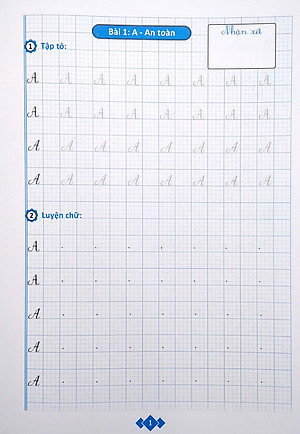 Bài 1: A - An toàn
Nhận xét
1 Tập tô:
A A A A A A A A
A A A A A A A A
A A A A A A A A
A A A A A A A A
2 Luyện chữ:
A
A
A
A
A
1